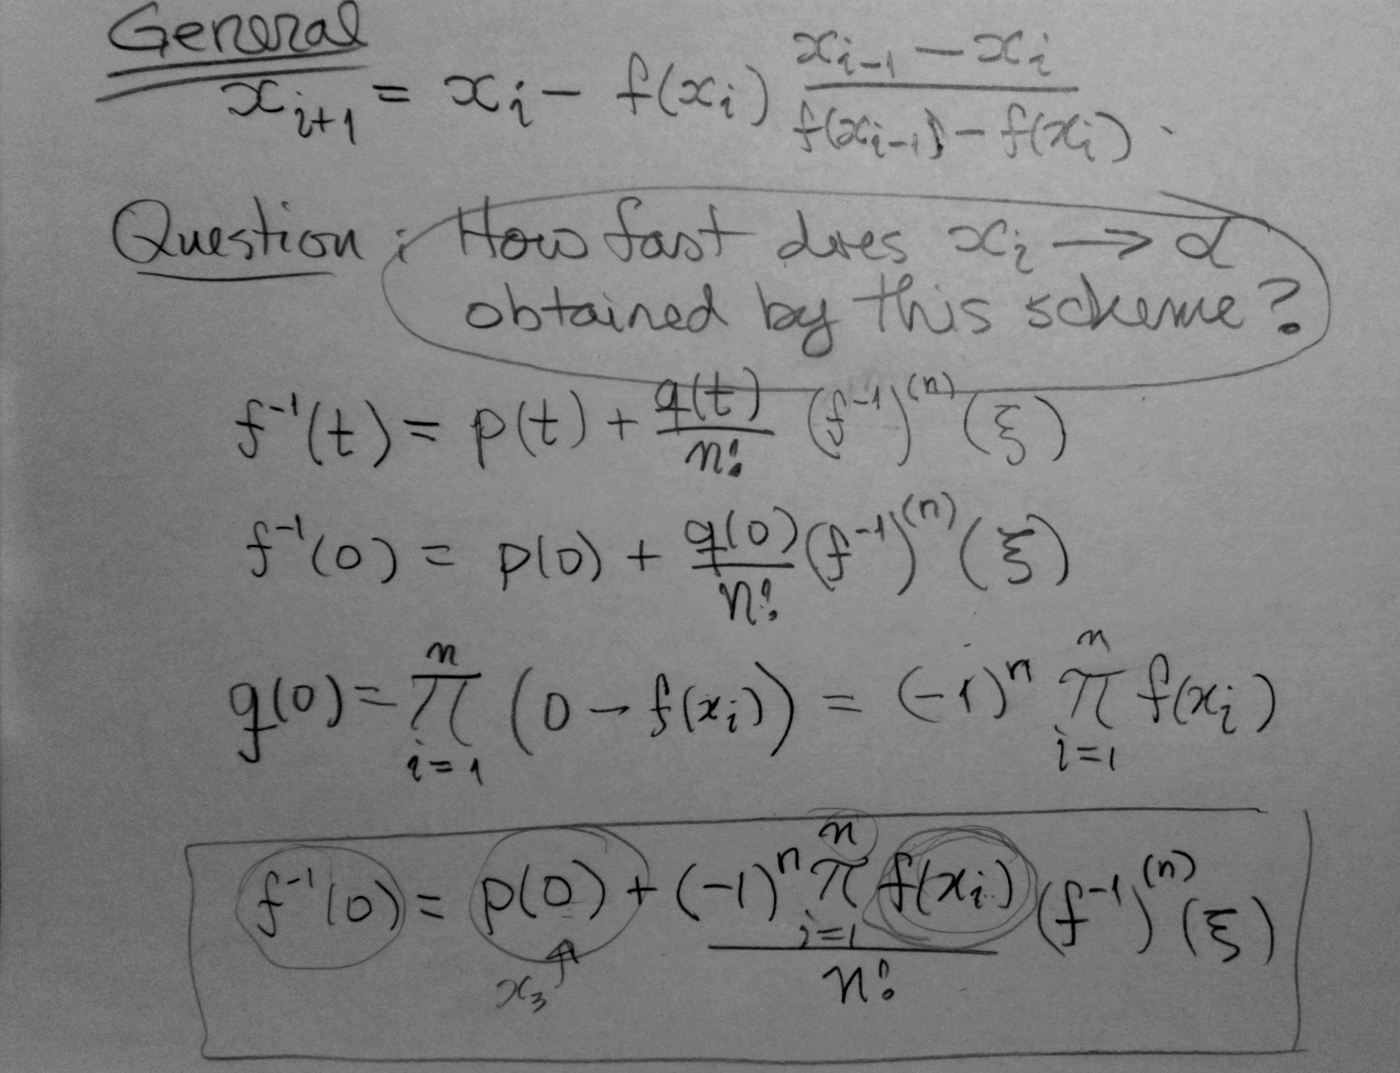 General
x_{i+1} = x_i − f(x_i) (x_{i−1} − x_i)/(f(x_{i−1}) − f(x_i)).
Question : How fast does x_i → α
obtained by this scheme?
f⁻¹(t) = p(t) + q(t)/n! (f⁻¹)⁽ⁿ⁾(ξ)
f⁻¹(0) = p(0) + q(0)/n! (f⁻¹)⁽ⁿ⁾(ξ)
q(0) = π_{i=1}^{n} (0 − f(x_i)) = (−1)ⁿ π_{i=1}^{n} f(x_i)
f⁻¹(0) = p(0) + (−1)ⁿ π_{i=1}^{n} f(x_i)/n! (f⁻¹)⁽ⁿ⁾(ξ)
x₃